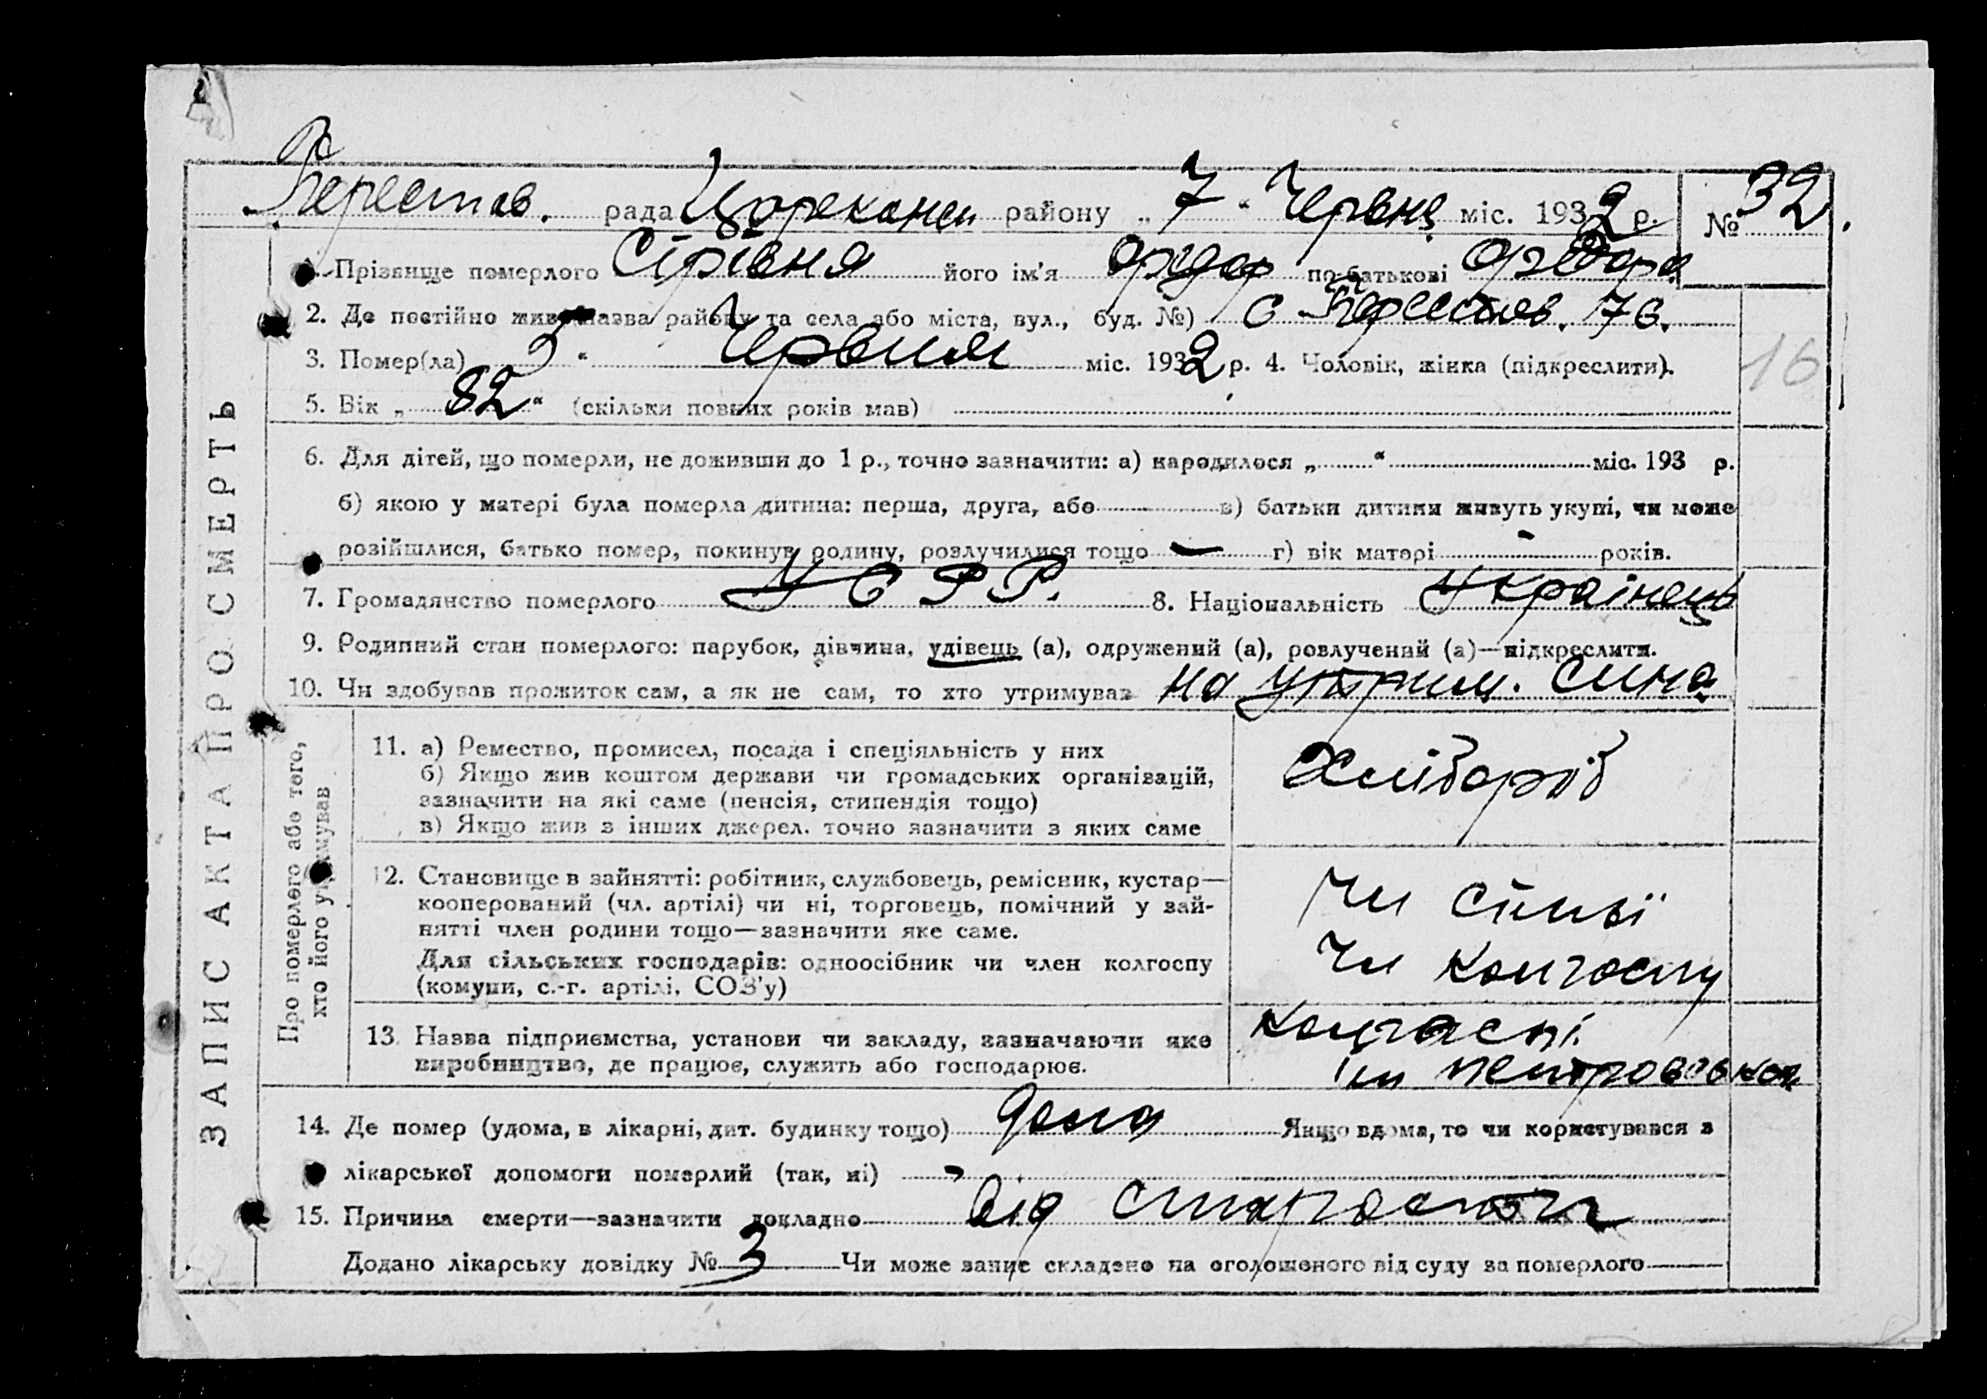 Берестов. рада Царекансь району „ 7 “ Червня міс. 1932 р. № 32.
1. Прізвище померлого його ім'я по батькові
2. Де постійно жив (назва району та села або міста, вул., буд. №) с Берестов. 76.
3. Помер(ла) 5 “ Червня міс. 1932 р. 4. Чоловік, жінка (підкреслити).
16
5. Вік „ 82 “ (скільки повних років мав)
6. Для дітей, що померли, не доживши до 1 р., точно зазначити: а) народилося „ “ міс. 193 р.
б) якою у матері була померла дитина: перша, друга, або в) батьки дитини живуть укупі, чи може
розійшлися, батько помер, покинув родину, розлучилися тощо — г) вік матері - років.
7. Громадянство померлого УСРР. 8. Національність Українець
9. Родинний стан померлого: парубок, дівчина, удівець (а), одружений (а), розлучений (а)—підкреслити.
10. Чи здобував прожиток сам, а як не сам, то хто утримував на утрим. сина
ЗАПИС АКТА ПРО СМЕРТЬ
Про померлого або того,
хто його утримував
11. а) Ремество, промисел, посада і спеціяльність у них
б) Якщо жив коштом держави чи громадських організацій,
зазначити на які саме (пенсія, стипендія тощо)
в) Якщо жив з інших джерел. точно зазначити з яких саме
Хлібороб
12. Становище в зайнятті: робітник, службовець, ремісник, кустар—
кооперований (чл. артілі) чи ні, торговець, помічний у зай-
нятті член родини тощо—зазначити яке саме.
Для сільських господарів: одноосібник чи член колгоспу
(комуни, с.-г. артілі, СОЗ'у)
Чл сімьї
Чл колгоспу
13. Назва підприємства, установи чи закладу, зазначаючи яке
виробництво, де працює, служить або господарює.
колгоспі
ім Петровсько
14. Де помер (удома, в лікарні, дит. будинку тощо) дома Якщо вдома, то чи користувався з
лікарської допомоги померлий (так, ні) -
15. Причина смерти—зазначити докладно від старости
Додано лікарську довідку № 3 Чи може запис складено на оголошеного від суду за померлого